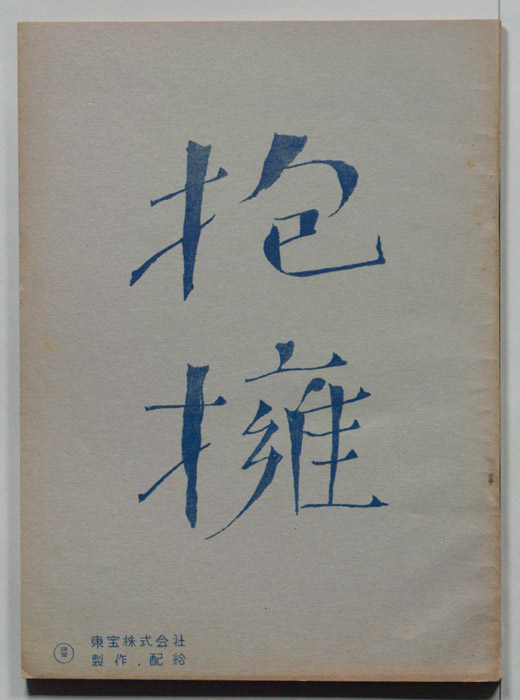 抱擁
東宝株式会社
製作.配給